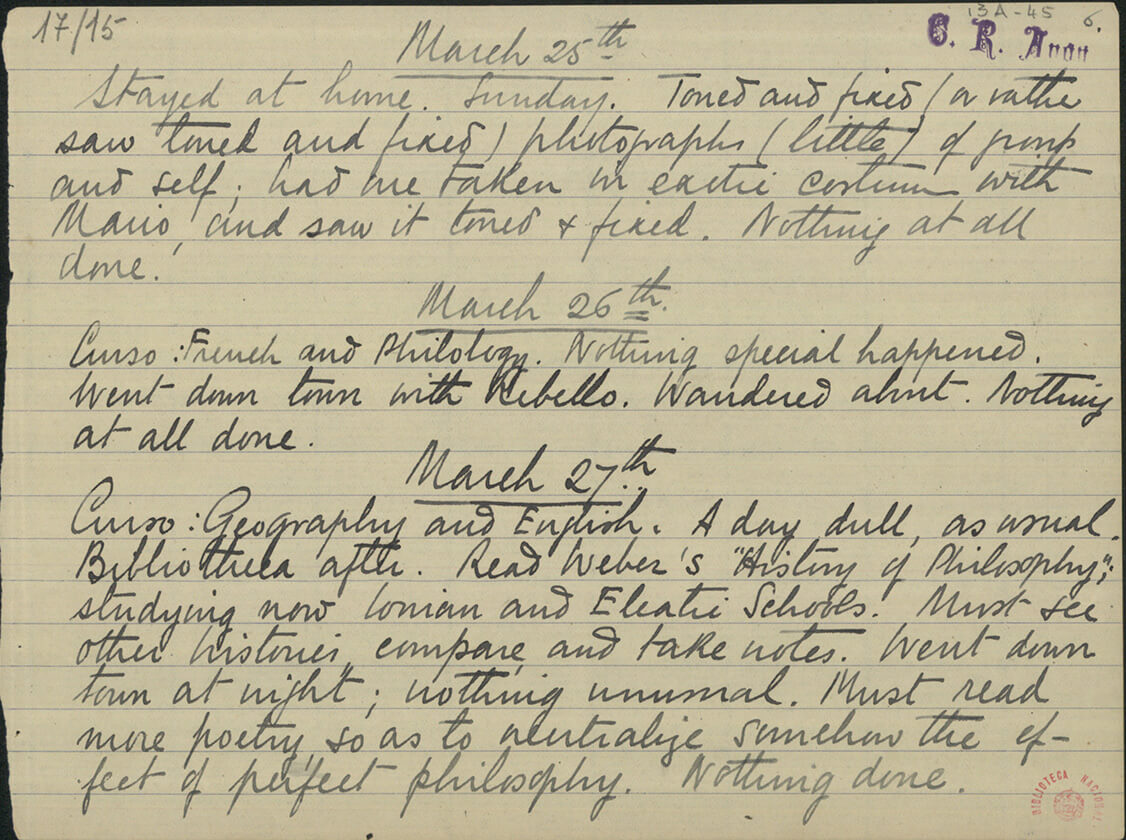 17/15
13A-45
6.
C. R. Anon
March 25th
Stayed at home. Sunday. Toned and fixed (or rathe
saw toned and fixed) photographs (little) of group
and self; had me taken in exotic costum with
Mario, and saw it toned & fixed. Nothing at all
done.
March 26th.
Curso: French and Philology. Nothing special happened.
Went down town with Rebello. Wandered about. Nothing
at all done.
March 27th
Curso: Geography and English. A day dull, as usual.
Bibliotheca after. Read Weber's "History of Philosophy";
studying now Ionian and Eleatic Schools. Must see
other histories, compare, and take notes. Went down
town at night; nothing unusual. Must read
more poetry, so as to neutralize somehow the ef-
fect of perfect philosophy. Nothing done.
BIBLIOTECA NACIONAL